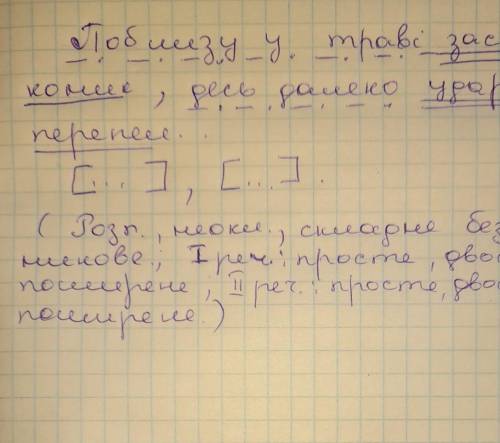 Поблизу у траві зас
коник, десь далеко удар
перепел.
[...], [...].
(Розп., неокл., складне без
никове; I реч.: просте, двос
поширене, II реч.: просте, двос
поширене.)